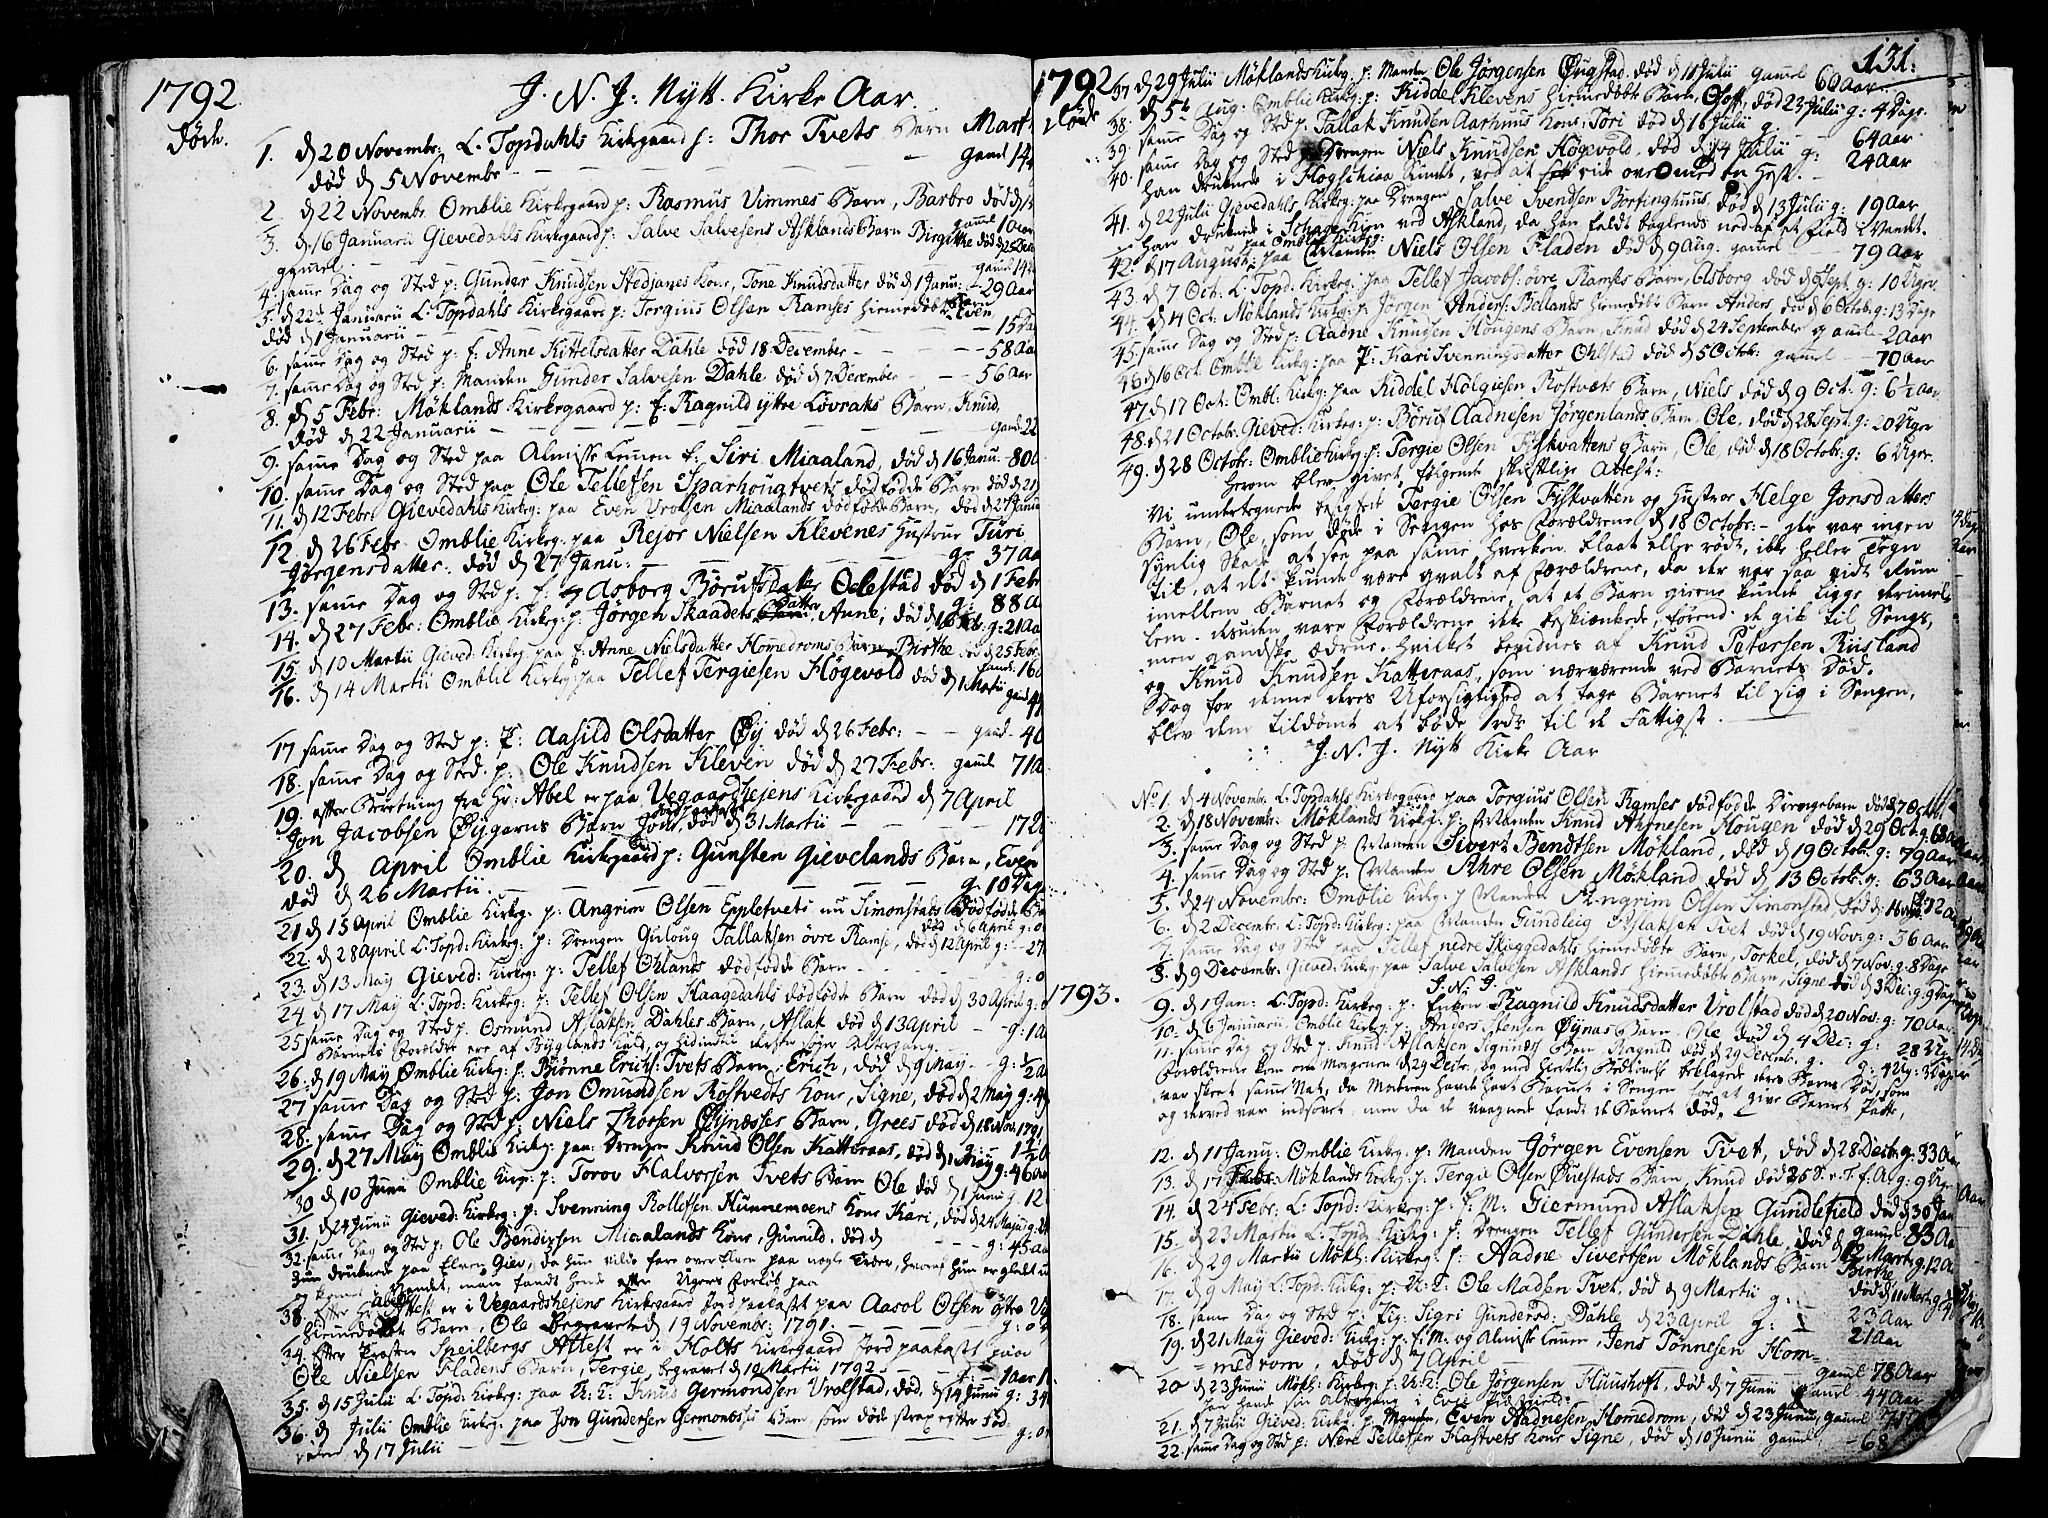 1792.
J. N. J. Nytt. Kirke Aar.
døde.
1. d 20 Novembr: L. Topdahls Kirkegaard p: Thor Tvets Barn Mart
død d 5 Novembr - - - gaml 14
2. d 22 Novembr. Omblie Kirkegaard p: Rasmus Vimmes Barn, Barbro død d
gaml 1
3. d 16 Januarii Gievedahls Kirkegaard p: Salve Salvesens Asklands Barn Birgithe død d 25 Dec
gamel. - - - gaml 14
4. samme Dag og Sted p: Gunder Knudsen Stedjanes Kone, Tone Knudsdatter død d 1 Janu: - 29 Aar
5. d 22 Januarii L. Topdahls Kirkegaard p: Tergius Olsen Ramses hiemedøbt Barn Even,
død d 1 Januarii - - - 15
6. samme Dag og Sted p: f: Anne Kittelsdatter Dahle død 18 December - - - 58 Aa
7. samme Dag og Sted p: Manden Gunder Salvesen Dahle død d 7 December - - - 56 Aar
8. d 5 Febr: Møklands Kirkegaard p: f: Ragnild yttre Løvraks Barn, Knud,
død d 22 Januarii - - - gaml 22
9. samme Dag og Sted paa Almisse Lemen f: Siri Miaaland, død d 16 Janu: 80
10. samme Dag og Sted paa Ole Tellefsen Sparhougtvets dødfødde Barn død d 21
11. d 12 Febr: Gievedahls Kirkeg: paa Even Vrolsen Miaalands dødfødde Barn, død d 27 Janua
12. d 26 Febr. Omblie Kirkeg: paa Rejor Nielsen Klevenes Hustrue Turi
Jørgensdatter. død d 27 Janu: - - - g: 37 Aa
13. samme Dag og Sted p: f: Asborg Børufsdatter Odestad død d 1 Febr
g: 88 a
14. d 27 Febr: Omblie Kirkeg: p: Jørgen Skaadets Datter, Anne, død d 16 Feb. g: 21 Aa
15. d 10 Martii Gieved: Kirkeg: paa f: Anne Nielsdatter Homedroms Barn Birthe død d 25 Febr:
gaml: 16
16. d 14 Martii Omblie Kirkeg: paa Tellef Tergiesen Høgevold død d 1 Martii gaml
17 samme Dag og Sted p: f: Aasild Olsdatter Øy død d 26 Febr: - - gaml - 40
18. samme Dag og Sted. p: Ole Knudsen Kleven død d 27 Febr: gaml 71
19. efter Beretning fra Hr: Abel er paa Vegaardshejens Kirkegaard d 7 April
Jon Jacobsen Øygarns Barn Jon, død d 31 Martii - - - 17
20. d April Omblie Kirkegaard p: Gunsten Gievelands Barn, Even
død d 26 Martii. - - - g. 10 Dage
21 d 15 April Omblie Kirkeg: p: Angrim Olsen Eppletvets nu Simonstads dødfødde
død d 6 April g: 0
22. d 28 April L: Topd: Kirkeg: p: Drengen Guloug Tallaksen øvre Ramse, død d 12 April g: - 27
23. d 13 May Gieved: Kirkeg: p: Tellef Ohlands dødfødde Barn - - - g: 0
24 d 17 May L. Topd: Kirkeg: p: Tellef Olsen Haagedahls dødfødte Barn død d 30 April g: 0
25 samme Dag og Sted p. Osmund Aslaksen Dahles Barn, Aslak død d 13 April - - g: 1 a
Barnets Forældre ere af Byglands Kald,
26: d 19 May Omblie Kirkeg: p: Biønne Erichs: Tvets Barn Erich, død d 9 May - - g: 1/2 a
27 samme Dag og Sted p: Jon Omundsen Rostvedts Kone, Signe, død d 2 May g: 4
28. samme Dag og Sted p: Niels Thorsen Øynæsses Barn, Grees død d 18 Nov: 1791
29. d 27 May Omblie Kirkeg: paa Drengen Knud Olsen Katteraas, død d 1 May g: 46 aa
30 d 10 Junii Omblie Kirk. p: Torov Halvorsen Tvets Barn Ole død d 1 Junii g: 12
31. d 24 Junii Gieved: Kirkeg: p: Svenning Rollefsen Hunnemoens Kone Kari, død d 24 Maji g:
32. samme Dag og Sted p: Ole Bendixsen Miaalands Kone, Gunnild, død d - - g: 45 aa
Hun druknede paa Elven Giev, da hun vilde fare over Elven paa nogle Træer, hvoraf hun er glidt
og kommet i Vandet, man fandt hende efter Ugers Forløb paa
33. Efter Hr: Abels Attest er i Vegaardshejens Kirkegaard Jord paakast paa Aasol Olsen yttre
hiemedøbt Barn, Ole begravet d 19 Novembr: 1791. - - - g: 0
34. Efter Prosten Speilbergs Attest er i Holts Kirkegaard Jord paakast paa
Ole Nielsen Fladens Barn, Tergie, begravet d 19 Martii 1792 - - - 1 aar
35. d 15 Julii L. Topd: Kirkeg: paa U: K: Knud Germondsen Vrolstad, død, d 14 Junii g: 34
36. d Julii Omblie Kirkeg: paa Jon Gundersen Germonesses Barn, som døde strax efter Fød-
selen, d 17 Julii - - - g: 0
1792
døde
131.
37. d 29 Julii Møklands Kirkg: p: Manden Ole Jørgensen Øygstad. død d 11 Julii gamel 60 Aar.
38. d 5te Aug: Omblie Kirkg: p: Kiddel Klevens hiemedøbte Barn, Oloff, død 23 Julii g: 4 Dage.
39. samme Dag og Sted p: Tallak Knudsen Aarhuus Kone, Tori død d 16 Julii g. 64 Aar
40. samme Dag og Sted p: Drengen Niels Knudsen Høgevold, død d 14 Julii g: 24 Aar
han druknede i Høgschiaa Sundet, ved at ride over med en Hest. -
41. d 22 Julii Gievedahls Kirkg: paa Drengen Salve Svendsen Bortinghuus, død d 13 Julii g: 19 Aar
han druknede i ved Askland, da han faldt baglends ned af et Field i Vandet.
42. d 17 August: paa Omblie Kirkg: Manden Niels Olsen Fladen død d 9 Aug. gamel - - 79 Aar
43. d 7 Oct. L: Topd: Kirkeg: paa Tellef Jacobs: øvre Ramses Barn, Asborg død d Sept. g: 10 Uger.
44. d 14 Oct: Møklands Kirkg: p: Jørgen Anders: Bellands hiemedøbt Barn Anders, død d 6 Octob: g: 13 Dage
45. samme Dag og Sted p: Aadne Knudsen Hougens Barn, Knud død d 24 September gamel - 2 Aar
46 d 16 Oct. Omblie Kirkg: paa f: Kari Svenningsdatter Ohlstad død d 5 Octob: gamel - - 70 Aar
47 d 17 Oct: Ombl: Kirkg: paa Kiddel Holgiesen Rostvets Barn, Niels død d 9 Oct. g: 6 1/2 Aar
48. d 21 Octob: Gieved: Kirkeg: p: Børuf Aadnesen Jørgenlands Barn Ole, død d 28 Sept. g: 20 Uger
49. d 28 Octobr: Omblie Kirkg: p: Tergie Olsen Fiskvattens Barn, Ole, død d 18 Octobr: g: 6 Uger.
herom blev givet følgende skriftlige Attest:
Vi undertegnede besigtede Tergie Olsen Fiskvatten og Hustroe Helge Jonsdatters
Barn, Ole, som døde i Sengen hos Forældrene d 18 Octobr: - der var ingen
synlig Skade at see paa samme, hverken blaat eller rødt, ikke heller Tegn
til, at det kunde være qvalt af Forældrene, da der var saa vidt Rum
imellem Barnet og Forældrene, at et Barn gierne kunde ligge derimel-
lem. desuden vare Forældrene ikke beskiænkede, førend de gik til Sengs,
men gandske ædrue. hvilket bevidnes af Knud Petersen Riisland
og Knud Knudsen Katteraas, som nærværende ved Barnets Død.
Dog for denne deres Uforsigtighed at tage Barnet til sig i Sengen,
blev dem tildømt at bøde 1 rdr til de Fattige.
J. N. J. Nytt Kirke Aar
No 1. d 4 Novembr. L: Topdahls Kirkegaard paa Torgius Olsen Ramses dødfødde Drengebarn død d 7 Octob:
2. d 18 Novembr: Møklands Kirkg: p: Manden Knud Aanesen Hougen død d 29 Oct: g: 68 aar
3. samme Dag og Sted p: Manden Sivert Bendtsen Møkland, død d 19 Octob: g: 79 Aar
4. samme Dag og Sted p: Manden Anre Olsen Møkland død d 13 Octob: g: 63 Aar
5. d 24 Novembr: Omblie Kirkg: p: Manden Angrim Olsen Simonstad, død d: 16 Nov: 72 A
6. d 2 Decembr: L: Topd: Kirkg: paa Manden Gundleig Aslaksen Tvet død d 19 Nov: g: 36 Aar
7. samme Dag og Sted paa Tellef nedre Skieggedahls hiemedøbte Barn, Torkel, død d 7 Nov: g: 8 Dage
8. d 9 Decembr: Gieved: Kirkg: paa Salve Salvesen Asklands hiemedøbte Barn, Signe død d 3 Dec: g: 9 Dage
J. N. J.
1793.
9. d 1 Jan: L: Topd: Kirkeg: p: Enken Ragnild Knudsdatter Vrolstad død d 20 Nov: g: 70 Aar
10. d 6 Januarii, Omblie Kirkg: p: Anders Stensen Øynas Barn, Ole død d 4 Dec: g: 28 Uger
11. samme Dag og Sted p: Knud Aslaksen Signnæs Barn Ragnild død d 29 Decemb: g. 4 Ug:
Forældrene kom om Morgenen d 29 Decbr, og med hiertelig Bedrøvelse beklagede deres Barns Død, som
var skeet samme Nat, da Moderen havde havt Barnet i Sengen for at give Barnet Patte,
og derved var indsovet, men da de vaagnede fandt de Barnet død.
12. d 11 Janu: Omblie Kirkg: p: Manden Jørgen Evensen Tvet, død d 28 Decbr g: 33 Aar
13. d 17 Febr: Møklands Kirkg: p: Tergie Olsen Øuestads Barn, Knud død d S. e. T. f: Aug: 9 Uger
14. d 24 Febr: L: Topd: Kirkeg: p: f. M: Giermund Aslaksen Gundlefield død d 30 Jan
gamel 83 Aa
15. d 23 Martii L. Topd Kirkg: p: Drengen Tellef Gundersen Dahle, død d 12 Martii g: 12 A
16. d 29 Martii Møkl: Kirkeg: p: Aadne Sivertsen Møklands Barn Birthe
død d 11 Mart: g:
17. d 9 May L: Topd: Kirkg: p: U: K: Ole Madsen Tvet, død d 9 Martii g: 23 Aar
18. samme Dag og Sted p: Pig: Sigri Gundersd: Dahle d 23 April g: 21 Aar
19. d 21 May Gieved: Kirkg: p: f: M: og Almisse Lemen, Jens Tønnesen Hom-
=medrom, død d 7 April - - - gamel 78 Aar
20 d 23 Junii Møkl: Kirkeg: p: U: K: Ole Jørgensen Huushoft, død d 7 Junii gamel 44 Aar
21. d 7 Julii Gieved: Kirkg: p: Manden, Even Aadnesen Homedrom, død d 23 Junii, gamel 75
22. samme Dag og Sted p: Nere Tellefsen Hastvets Kone Signe, død d 10 Junii gamel, - 68